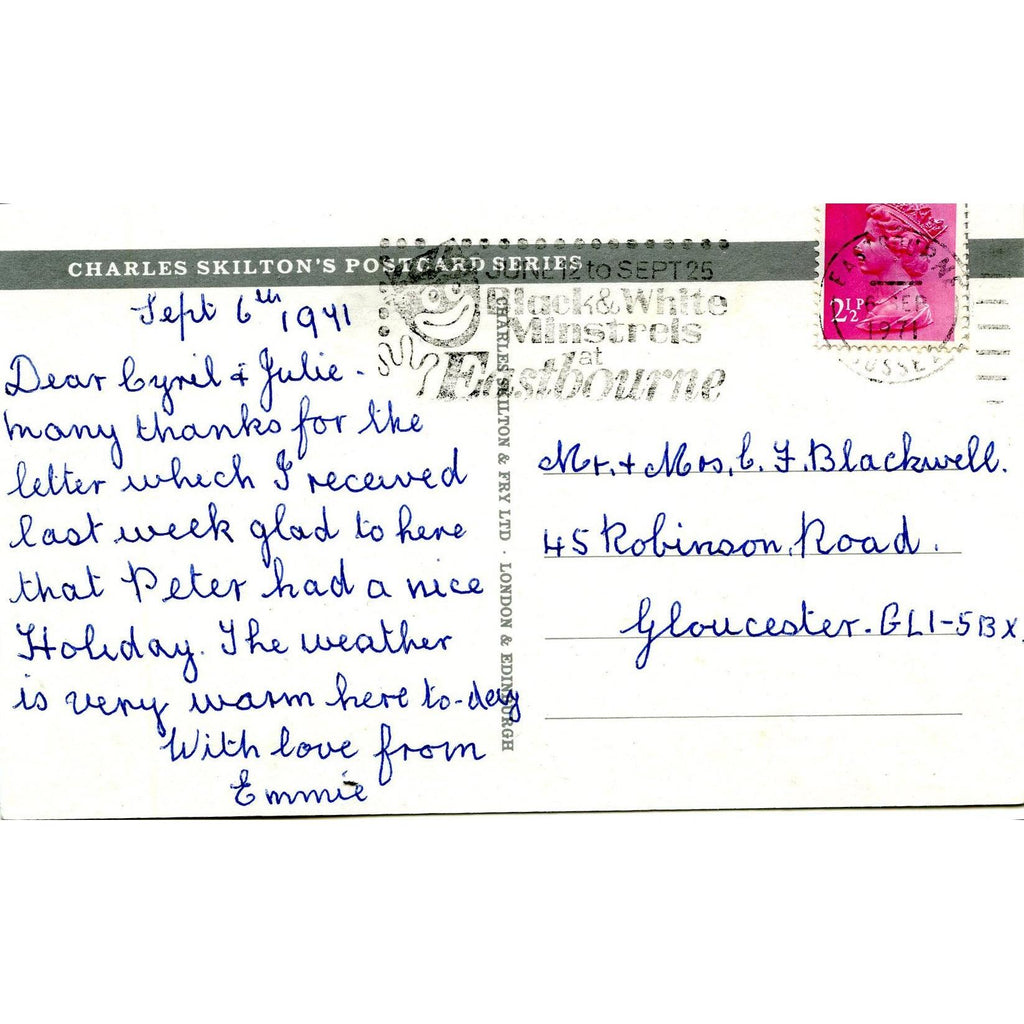 CHARLES SKILTON'S POSTCARD SERIES
JUNE 12 to SEPT 25
Black & White
Minstrels
at
Eastbourne
2½P
EASTBOURNE
6 SEP
1971
SUSSEX
Sept 6th 1971
Dear Cyril & Julie.
many thanks for the
letter which I received
last week glad to here
that Peter had a nice
Holiday. The weather
is very warm here to-day
With love from
Emmie
CHARLES SKILTON & FRY LTD · LONDON & EDINBURGH
Mr. + Mrs. C. F. Blackwell.
45 Robinson Road.
Gloucester. GL1-5BX